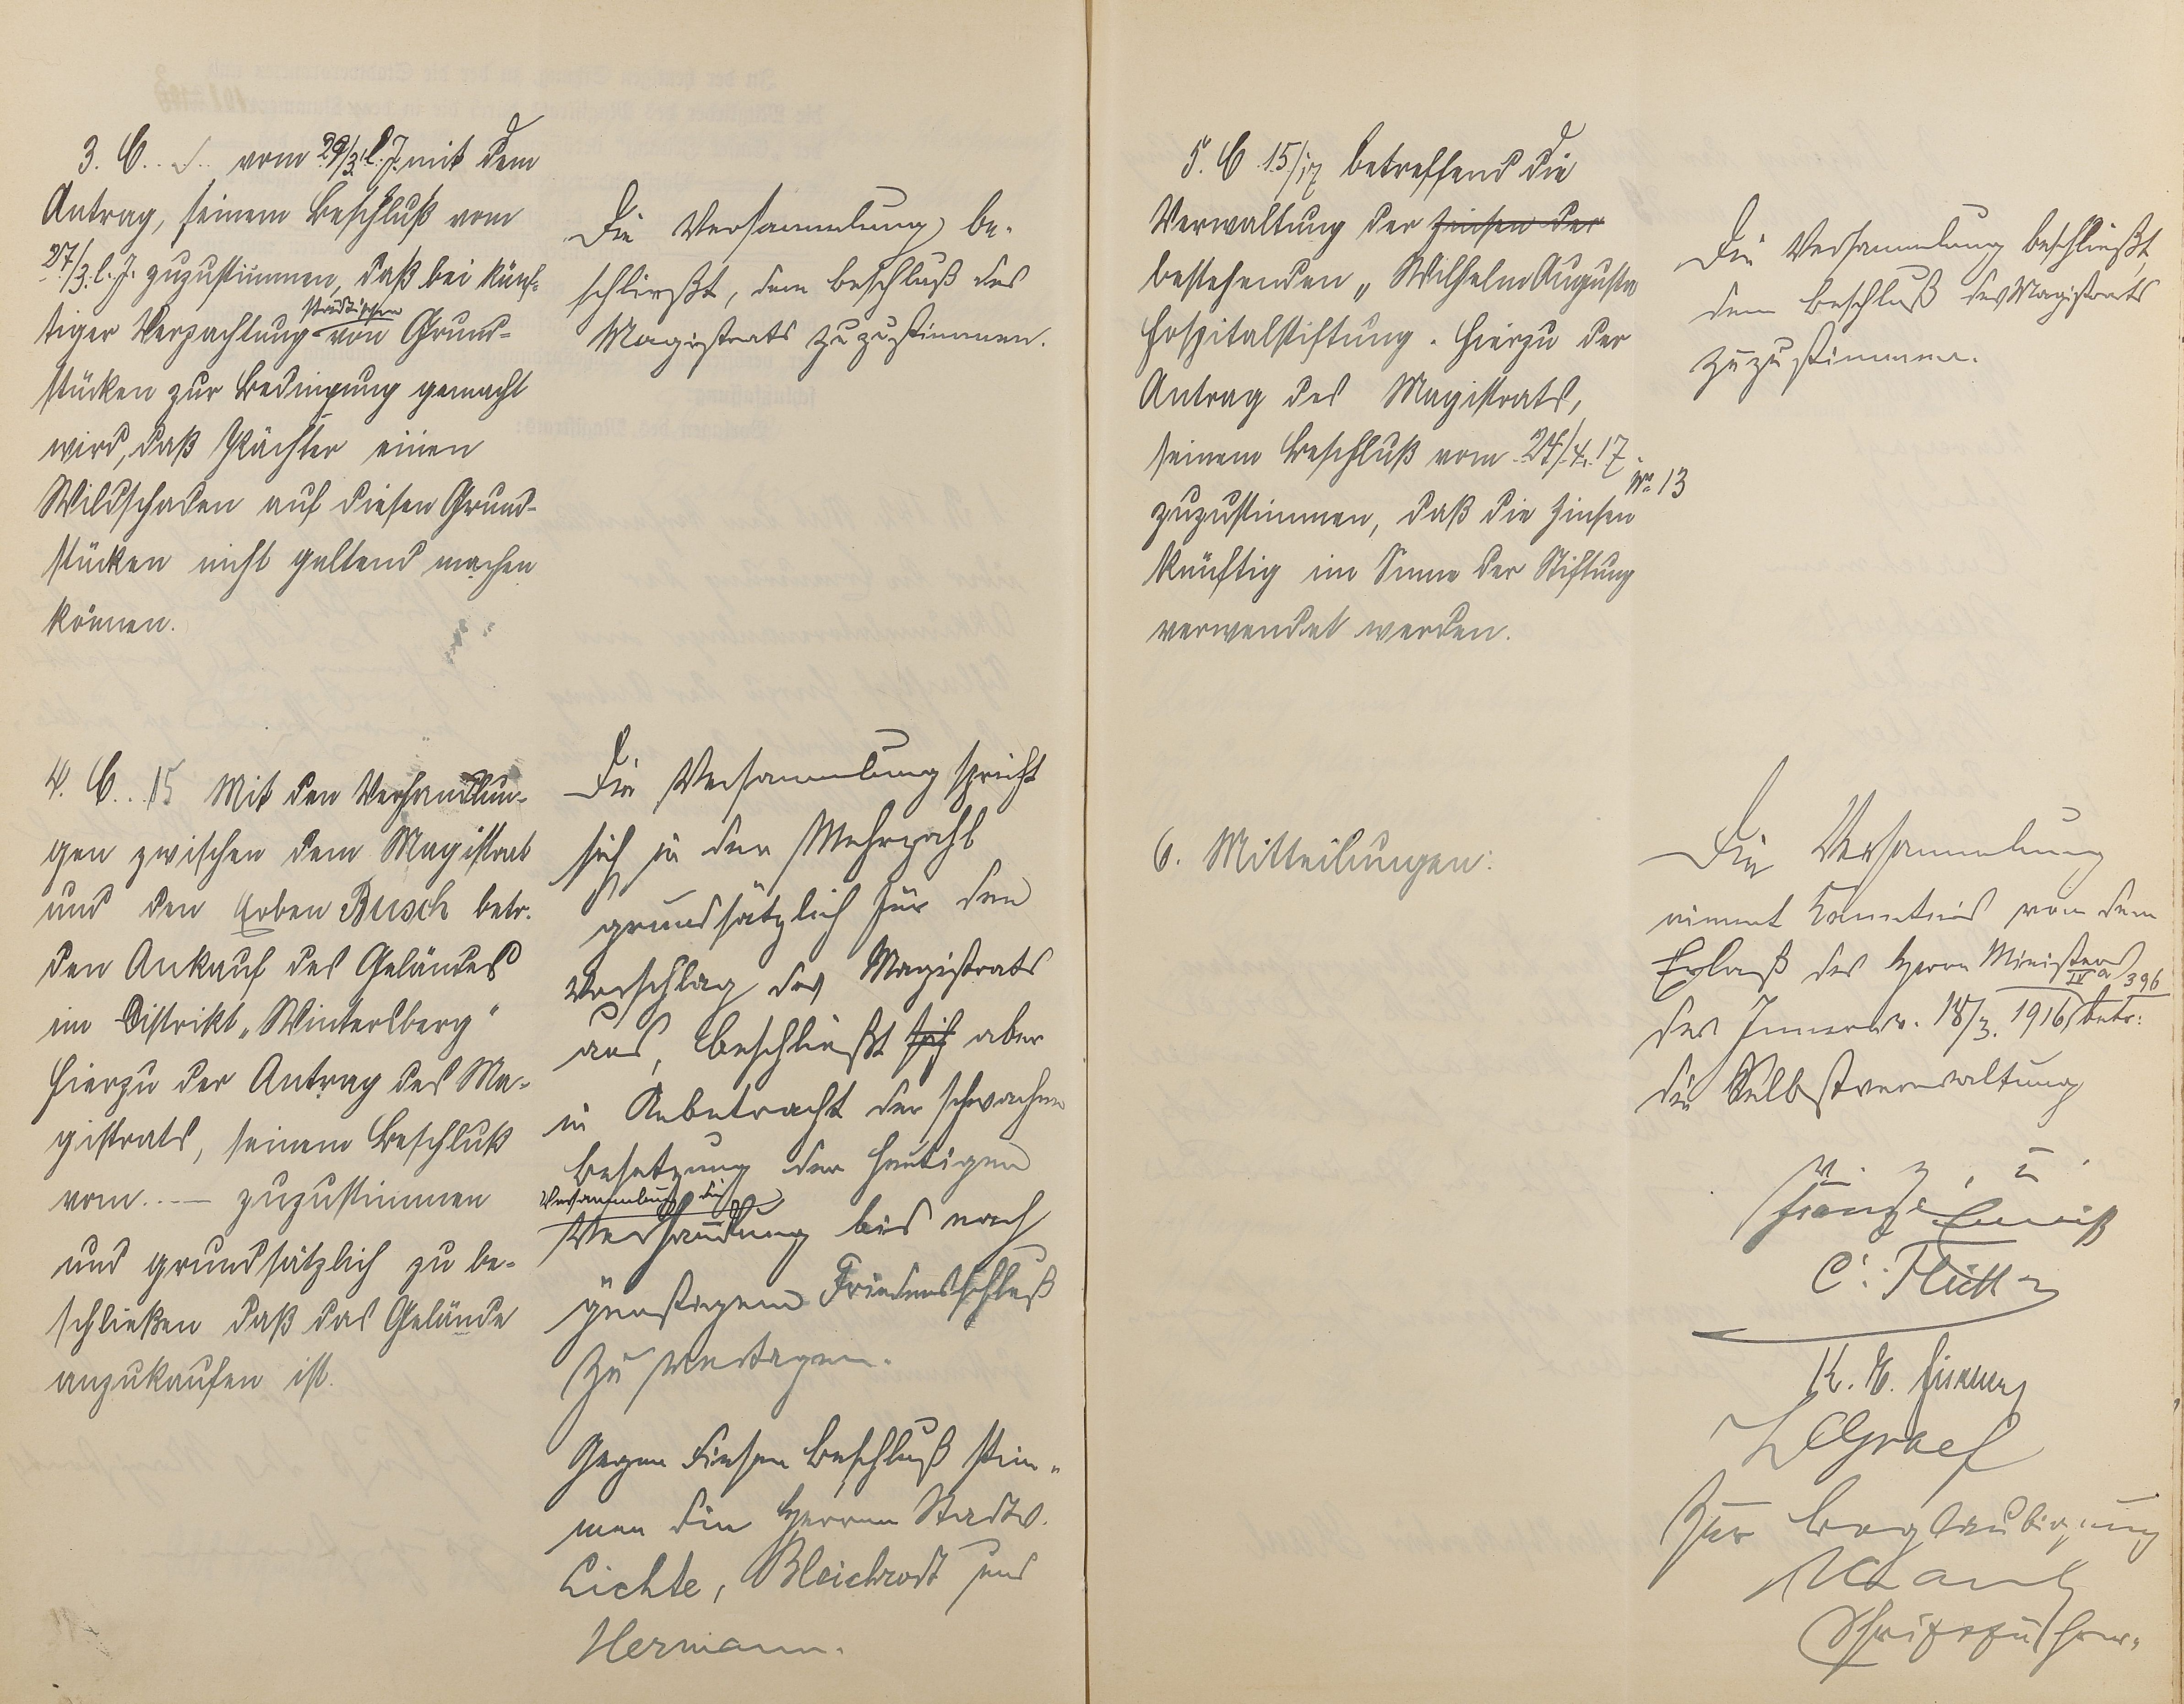 3. C. . . . . vom 29/3. l. J. mit dem
Antrag, seinem Beschluß vom
27/3. l. J. zuzustimmen, daß bei künf-
tiger Verpachtung städtischen von Grund-
stücken zur Bedingung gemacht
wird, daß Pächter einen
Wildschaden auf diesen Grund-
stücken nicht geltend machen
können.
Die Versammlung be-
schließt, dem Beschluß des
Magistrats zuzustimmen.
4. C. . 15 Mit den Verhandlun-
gen zwischen dem Magistrat
und den Erben Busch betr.
den Ankauf des Geländes
im Distrikt „Wintersberg"
Hierzu der Antrag des Ma-
gistrats, seinem Beschluß
vom . . — zuzustimmen
und grundsätzlich zu be-
schließen daß das Gelände
anzukaufen ist.
Die Versammlung spricht
sich in der Mehrzahl
grundsätzlich für den
Vorschlag des Magistrats
aus, beschließt sich aber
in Anbetracht der schwachen
Besetzung der heutigen
Versammlung die
Verhandlung bis nach
günstigem Friedensschluß
zu vertagen.
Gegen diesen Beschluß stim-
men die Herren Stadtv.
Lichte, Bleichrodt und
Hermann.
5. C 15/17 betreffend die
Verwaltung der Zinsen der
bestehenden „Wilhelm Augusta
Hospitalstiftung. Hierzu der
Antrag des Magistrats,
seinem Beschluß vom 24/4. 17.
No 13
zuzustimmen, daß die Zinsen
künftig im Sinne der Stiftung
verwendet werden.
Die Versammlung beschließt,
dem Beschluß des Magistrats
zuzustimmen.
6. Mitteilungen:
Die Versammlung
nimmt Kenntnis von dem
Erlaß des Herrn Ministers
IV a 396
des Innern v. 18/3. 1916 betr:
die Selbstverwaltung
v. g. u.
C. Flitt
K. H.
Graef
Zur Beglaubigung
Schriftführer.